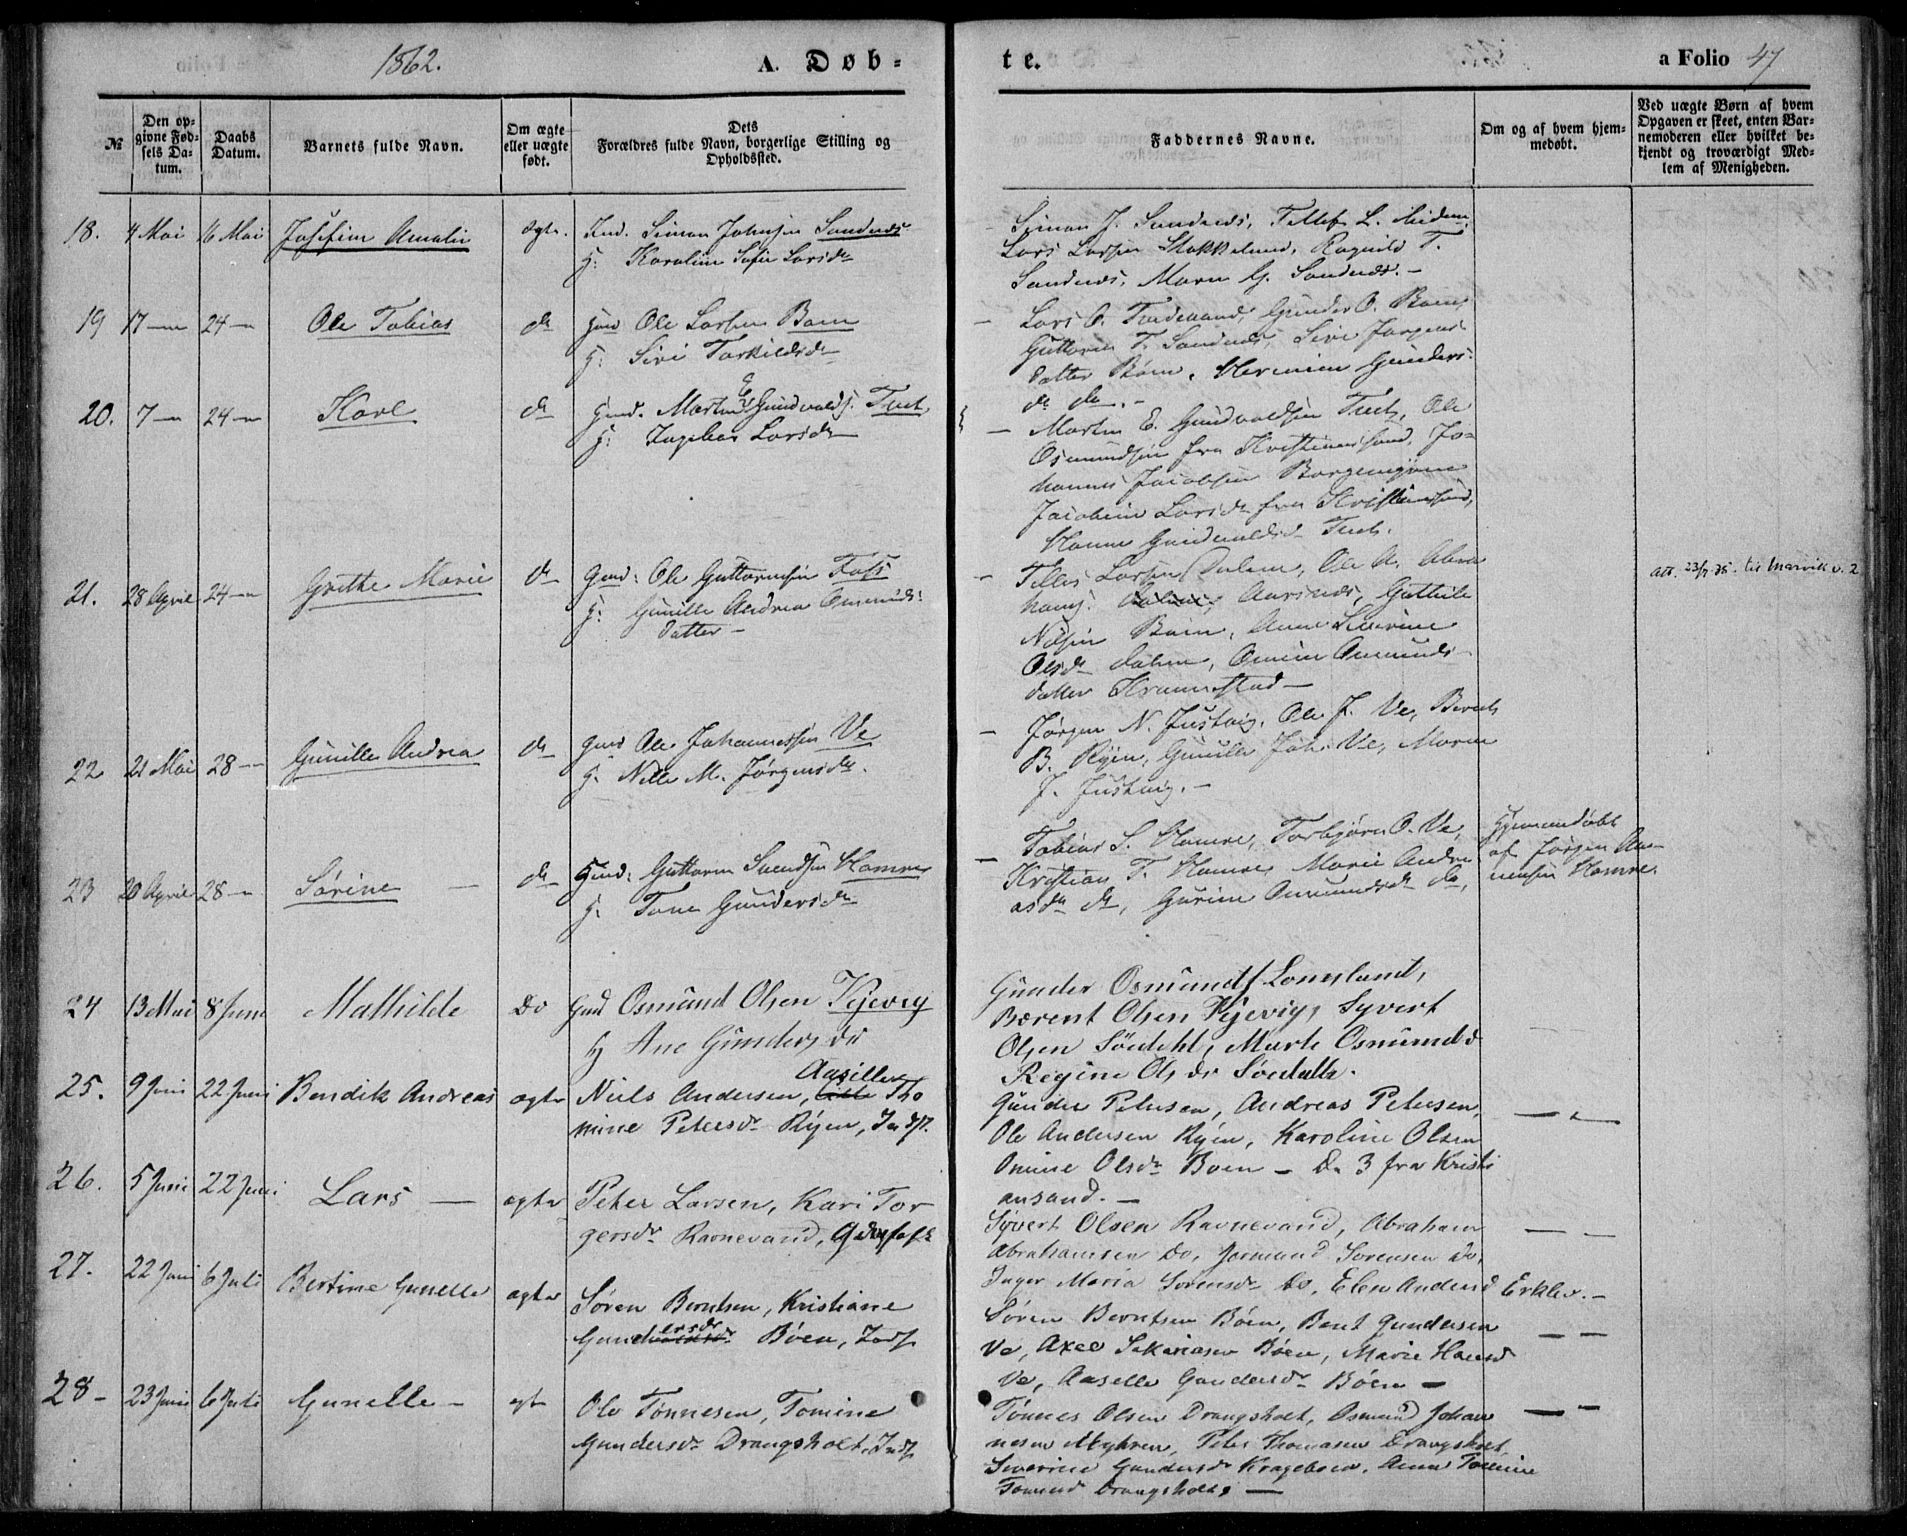 1862.
A. Døb-
te.
a Folio 47
№
Den op-
givne Fød-
sels Da-
tum.
Daabs
Datum.
Barnets fulde Navn.
Om ægte
eller uægte
født.
Dets
Forældres fulde Navn, borgerlige Stilling og
Opholdssted.
Faddernes Navne.
Om og af hvem hjem-
medøbt.
Ved uægte Børn af hvem
Opgaven er skeet, enten Bar-
nemoderen eller hvilket be-
kjendt og troværdigt Med-
lem af Menigheden.
18. 4 Mai 16 Mai Josefine Amalie ægte. Ind. Simon Johnsen Sandnes
H: Karoline Sofie Larsdr
Simon J. Sandnes, Tellef L.
Lars Larsen Stokkeland, Ragnild T.
Sandnes, Maren G. Sandnes. -
19 17 — 24 — Ole Tobias do Gmd Ole Larsen Boen
H: Siri Torkildsdr
Lars O. Gunder O. Boen,
Guttorm T. Sandnes, Siri Jørgens-
datter Boen, Hermine Gunders-
dr do. -
20. 7 — 24 — Karl do Gmd. Martin E. Gundvalds. Tveit
H: Ingebor Larsdr
Martin E. Gundvaldsen Tveit, Ole
Osmundsen fra Kristianssand, Jo-
hannes Jacobsen
Jacobine Larsdr fra Kristianssand,
Hanne Gundvaldsd Tveit.
21. 28 April 24 — Grethe Marie do Gmd: Ole Guttormsen Foss
H: Gunille Andrea Omunds-
datter -
Tellef Larsen Dalene, Ole A. Abra
hams. Aarsnes,
Boen, Anne
Olsdr Dalene, Omunds-
datter
att. 23/7 35
22 21 Mai 28 — Gunille Andrea do Gmd Ole Johannessen Ve
H. Nille M. Jørgensdr.
Jørgen N. Justvig, Ole J. Ve, Berent
B. Ryen, Gunille Joh. Ve, Maren
J. Justvig. -
23 20 April 28 — Sørine — do Gmd: Guttorm Svendsen Hamre
H. Tone Gundersdr
Tobias S. Hamre, Torbjørn O. Ve,
Kristian T. Hamre, Marie Andre
asdr do, Gurine Omundsdr do,
Hjemmedøbt
af Jørgen
Hamre.
24 13 Mai 8 Juni Mathilde Do Gmd Osmund Olsen Kjevig
H Ane Gunders dr
Gunder Osmunds Longland,
Bærent Olsen Kjevig, Syvert
Olsen Södahl, Marte Osmundsd
Regine Ols dr Södahl.
25. 9 Juni 22 Juni Bendik Andreas ægte Niels Andersen, Aasille Tho
mine Petersdr Ryen, Indst.
Gunder Petersen, Andreas Petersen,
Ole Andersen Ryen, Karoline Olsen
Omine Olsdr Boen — De 3 fra Kristi
ansand. —
26. 5 Juni 22 Juni Lars — ægte Peter Larsen, Kari Tor
gersdr Ravnevand,
Syvert Olsen Ravnevand, Abraham
Abrahamsen Do, Jermund Sorensen Do,
Inger Maria Sorensdr Do, Elen Andersd Erklev. -
27. 22 Juni 6 Juli Bertine Gunelle ægte Søren Berntsen, Kristiane
Gundersdr Böen, Inds
Sören Berntsen Böen, Bent Gundersen
Ve, Axel Sakariasen Böen, Marie Hansd
Ve, Aaselle Gundersdr Böen —
28 - 23 Juni 6 Juli Gunelle - egt Ole Tönnesen, Tomine
Gundersdr Drangsholt, Inds
Tønnes Olsen Drangsholt, Osmund Johan
nesen Myhren, Peter Thomasen Drangsholt,
Severine Gundersdr Krageboen, Anne Tomine
Tomesd Drangsholt, —